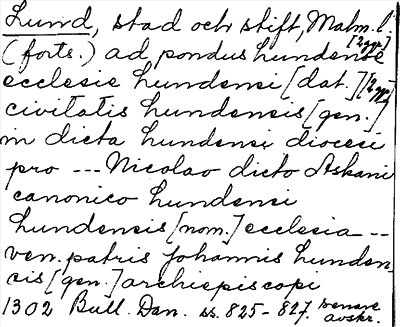 Lund, stad och stift, Malm. l.
(forts.) ad pondus lundense [2 ggr]
ecclesie lundensi [dat.] [2 ggr]
civitatis lundensis [gen.]
in dicta lundensi diocesi
pro --- Nicolao dicto Askani
canonico lundensi
lundensis [nom.] ecclesia --
ven. patris Johannis lunden-
cis [gen.] archiepiscopi
1302 Bull. Dan. ss. 825-827. senare avskr.